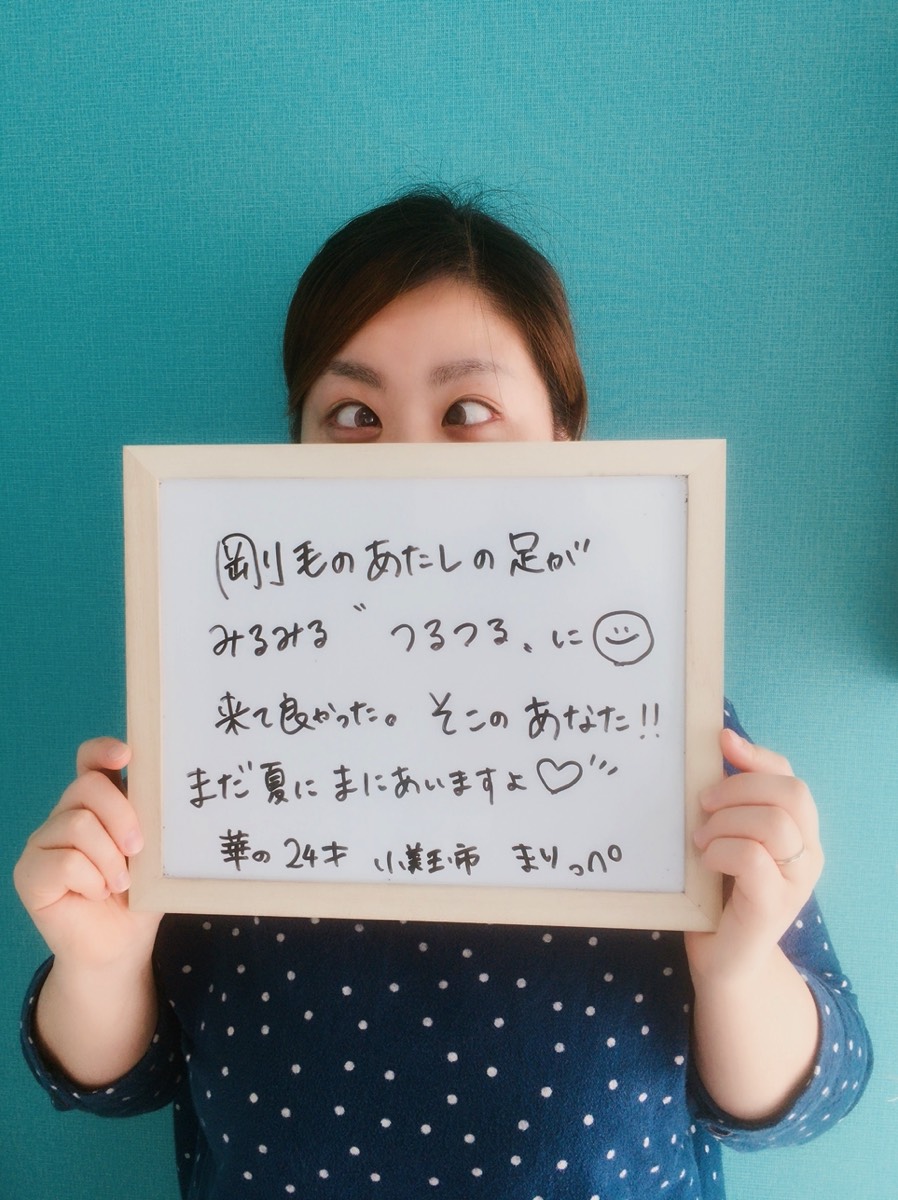 剛毛のあたしの足が
みるみる〝つるつる〟に
来て良かった。そこのあなた!!
まだ夏にまにあいますよ♡
華の24才 小美玉市 まりっぺ